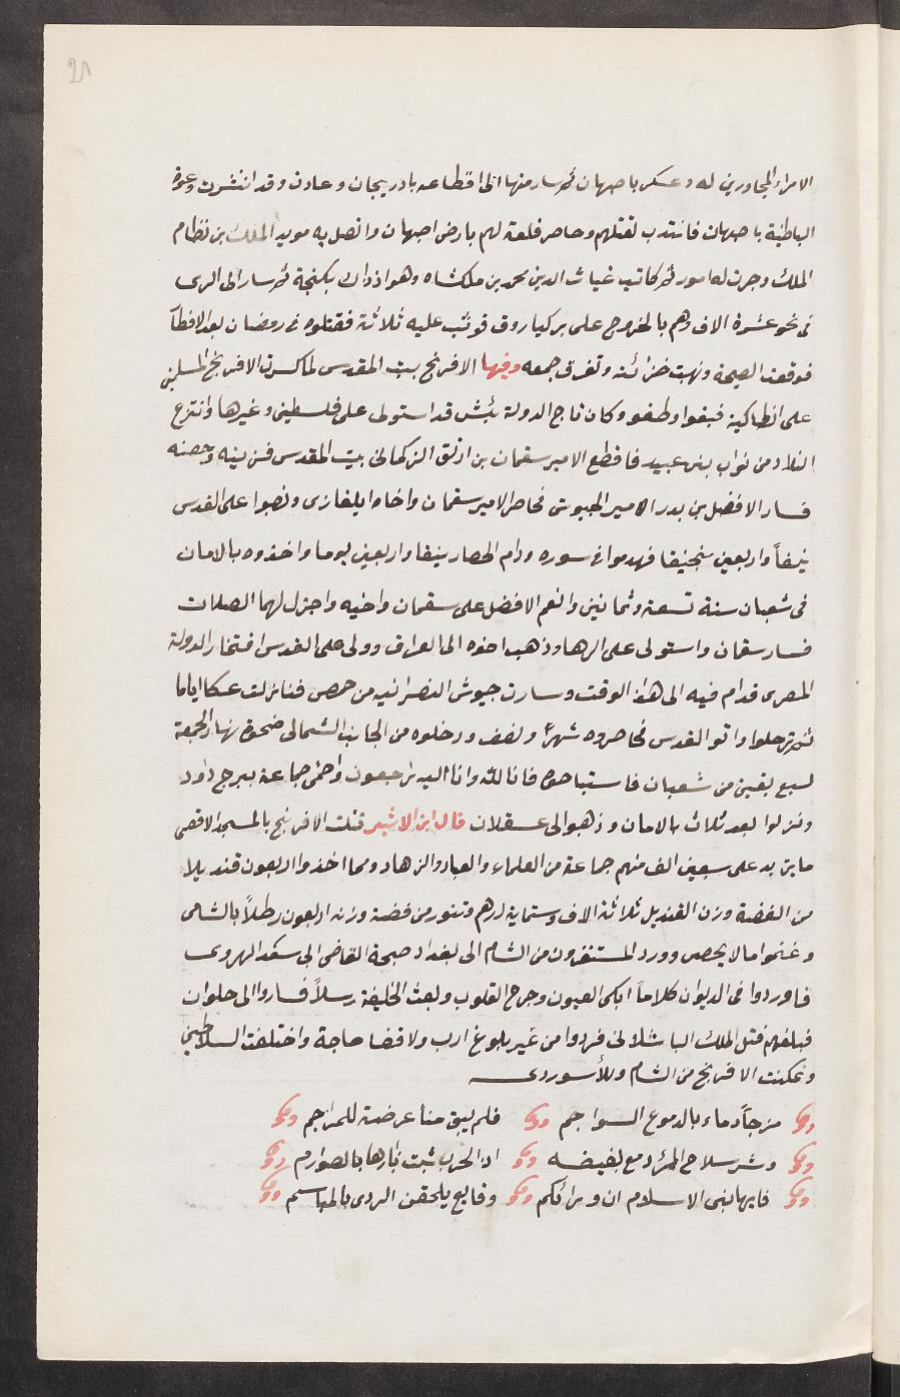 ٢٨
الامراء المجاورين له وعسكر باصبهان ثم سار منها الى اقطاعه بادربيجان وعادن وقد انتشرت دعوة
الباطنية باصبهان فانتدب لقتلهم وحاصر قلعة لهم بارض اصبهان واتصل به مويد الملك بن نظام
الملك وجرت له امور ثم كاتب غياث الدين محمد بن ملكشاه وهو اذ ذاك بكنجة ثم سار الى الرى
فى نحو عشرة الاف وهم بالخروج على بركياروق فوثب عليه ثلاثة فقتلوه فى رمضان بعد الافطار
فوقعت الصيحة ونهبت خزائنه وتفرق جمعه وفيها الافرنج بيت المقدس لما كسرت الافرنج المسلمين
على انطاكية فبغوا وطغو وكان تاج الدولة تتش قد استولى على فلسطين وغيرها وانتزع
البلاد من نواب بنى عبيد فاقطع الامير سقمان بن ارتق التركمانى بيت المقدس فزينه وحصنه
فسار الافضل بن بدر الامير الجيوش فحاصر الامير سقمان واخاه ايلغازى ونصبوا على القدس
نيفاً واربعين منجنيقا فهدموا فى سوره ودام الحصار نيفا واربعين يوما واخذوه بالامان
فى شعبان سنة تسعة وثمانين وانعم الافضل على سقمان واخيه واجزل لهما الصلات
فسار سقمان واستولى على الرها وذهب اخوه الى العراق وولى على القدس افتخار الدولة
المصرى فدام فيه الى هذا الوقت وسارت جيوش النصرانيه من حمص فنازلت عكا اياما
ثم ترحلوا واتو القدس فحاصروه شهراً ونصف ودخلوه من الجانب الشمالى ضحوة نهار الجمعة
لسبع بقين من شعبان فاستباحوه فانا لله وانا اليه راجعون واحتمى جماعة ببرج داود
ونزلوا بعد ثلاث بالامان وذهبو الى عسقلان قال ابن الاثير قتلت الافرنج بالمسجد الاقصى
ما يزيد على سبعين الف منهم جماعة من العلماء والعباد والزهاد ومما اخذوا اربعون قنديلا
من الفضة وزن القنديل ثلاثة الاف وستماية درهم وتنور من فضة وزنه اربعون رطلاً بالشامى
وغنموا ما لا يحصى وورد المستنفرون من الشام الى بغداد صحبة القاضى ابى سعد الهروى
فاوردوا فى الديوان كلاماً ابكى العيون وجرح القلوب وبعث الخليفة رسلاً فساروا الى حلوان
فبلغهم قتل الملك الباسلانى فردوا من غير بلوغ ارب ولا قضا حاجة واختلفت السلاطين
وتمكنت الافرنج من الشام وللأسوردى
مزجاً دماء بالدموع السواجم فلم يبق منا عرضة للمراجم
وشر سلاح المرء دمع يفيضه اذا الحرب شبت نارها بالصوارم
فايها بنى الاسلام ان ورائكم وقايع يلحقن الردى بالمناسم